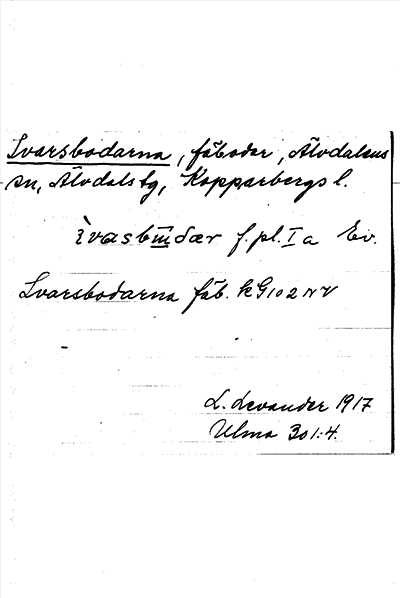 Ivarsbodarna, fäbodar, Älvdalens
sn, Älvdals tg, Kopparbergs l.
ìvasbūdær f. pl. I a Ev.
Ivarsbodarna fäb. kG 102 NV
L. Levander 1917
Ulma 301:4.